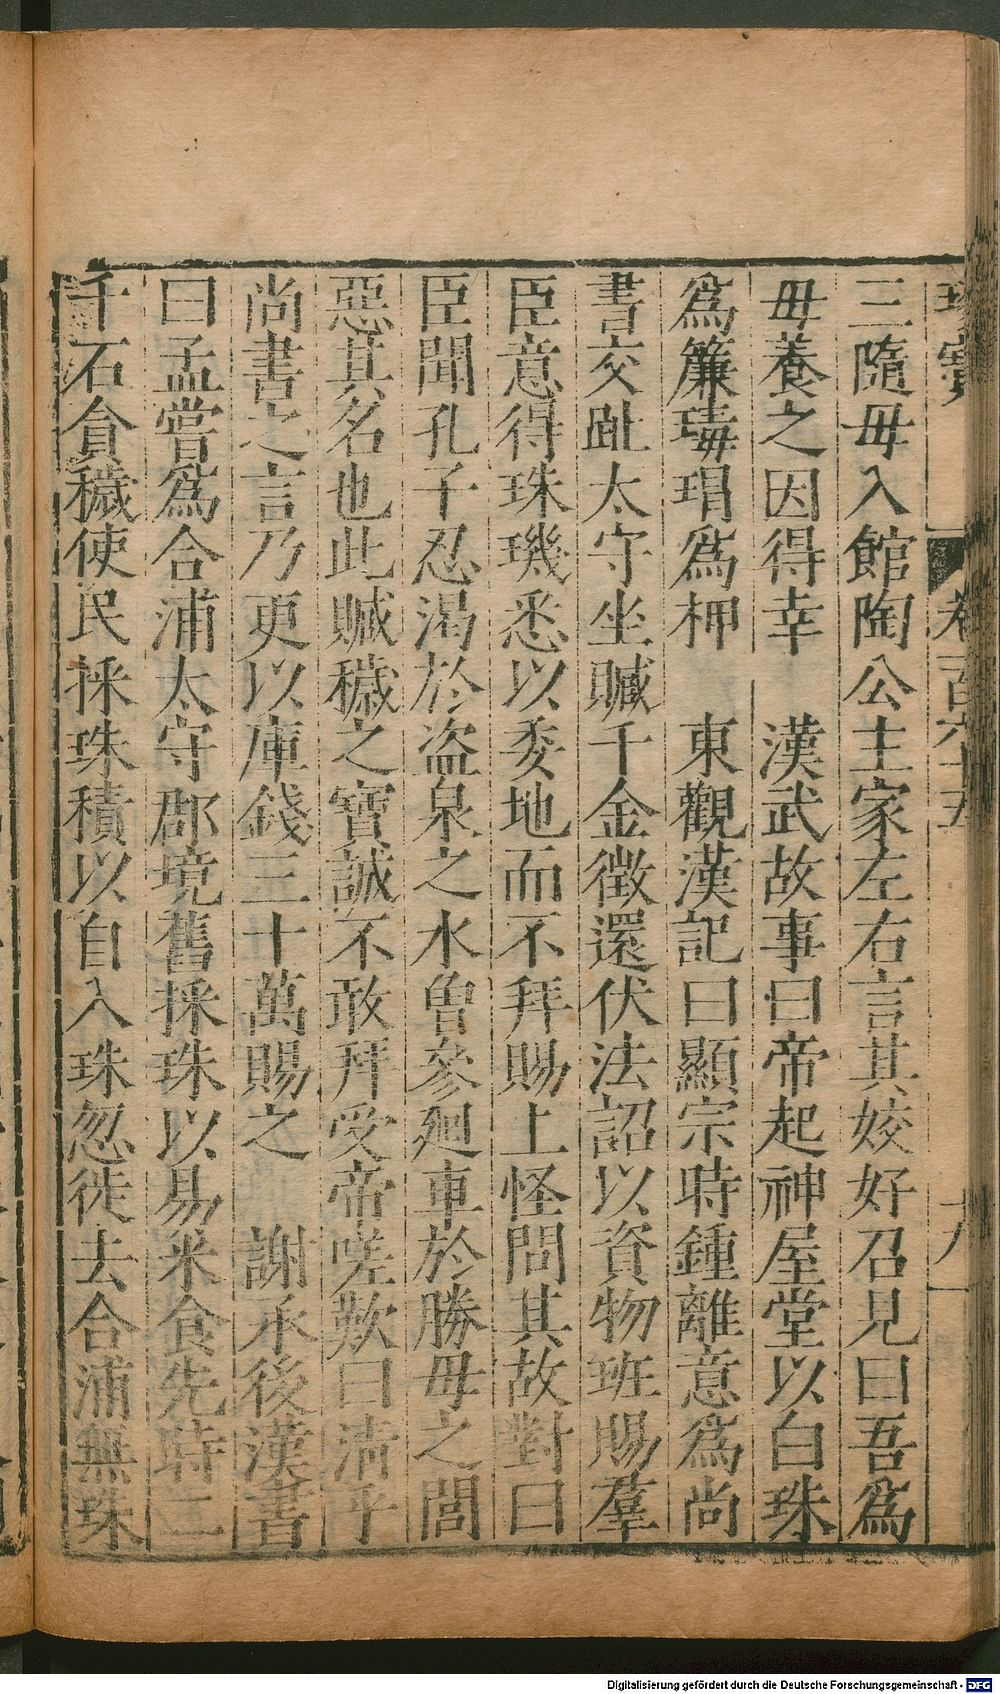 三隨毋入館陶公主家左右言其姣好召見曰吾爲
毋養之因得幸　漢武故事曰帝起神屋堂以白珠
爲簾瑇瑁爲柙　東觀漢記曰顯宗時鍾離意爲尚
書交趾太守坐贓千金徵還伏法詔以資物班賜羣
臣意得珠璣悉以委地而不拜賜上怪問其故對曰
臣聞孔子忍渴於盗泉之水曾參廻車於勝毋之閭
惡其名也此贓穢之寶誠不敢拜受帝嗟歎曰清乎
尚書之言乃更以庫錢三十萬賜之　謝承後漢書
曰孟嘗爲合浦太守郡境舊採珠以易米食先時二
千石貪穢使民採珠積以自入珠忽徙去合浦無珠
Digitalisierung gefördert durch die Deutsche Forschungsgemeinschaft - DFG